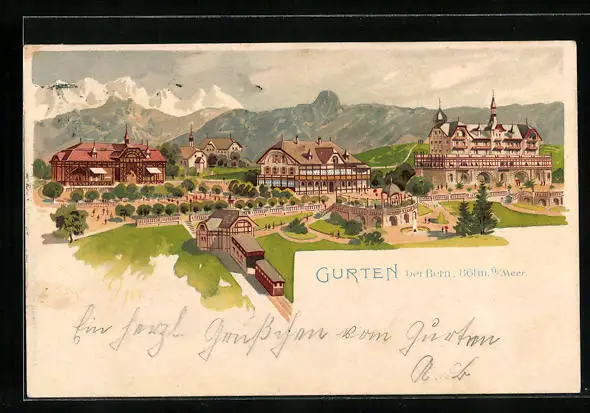 GURTEN bei Bern, 861m. ü/Meer.
Ein herzl. Grüßchen vom Gurten